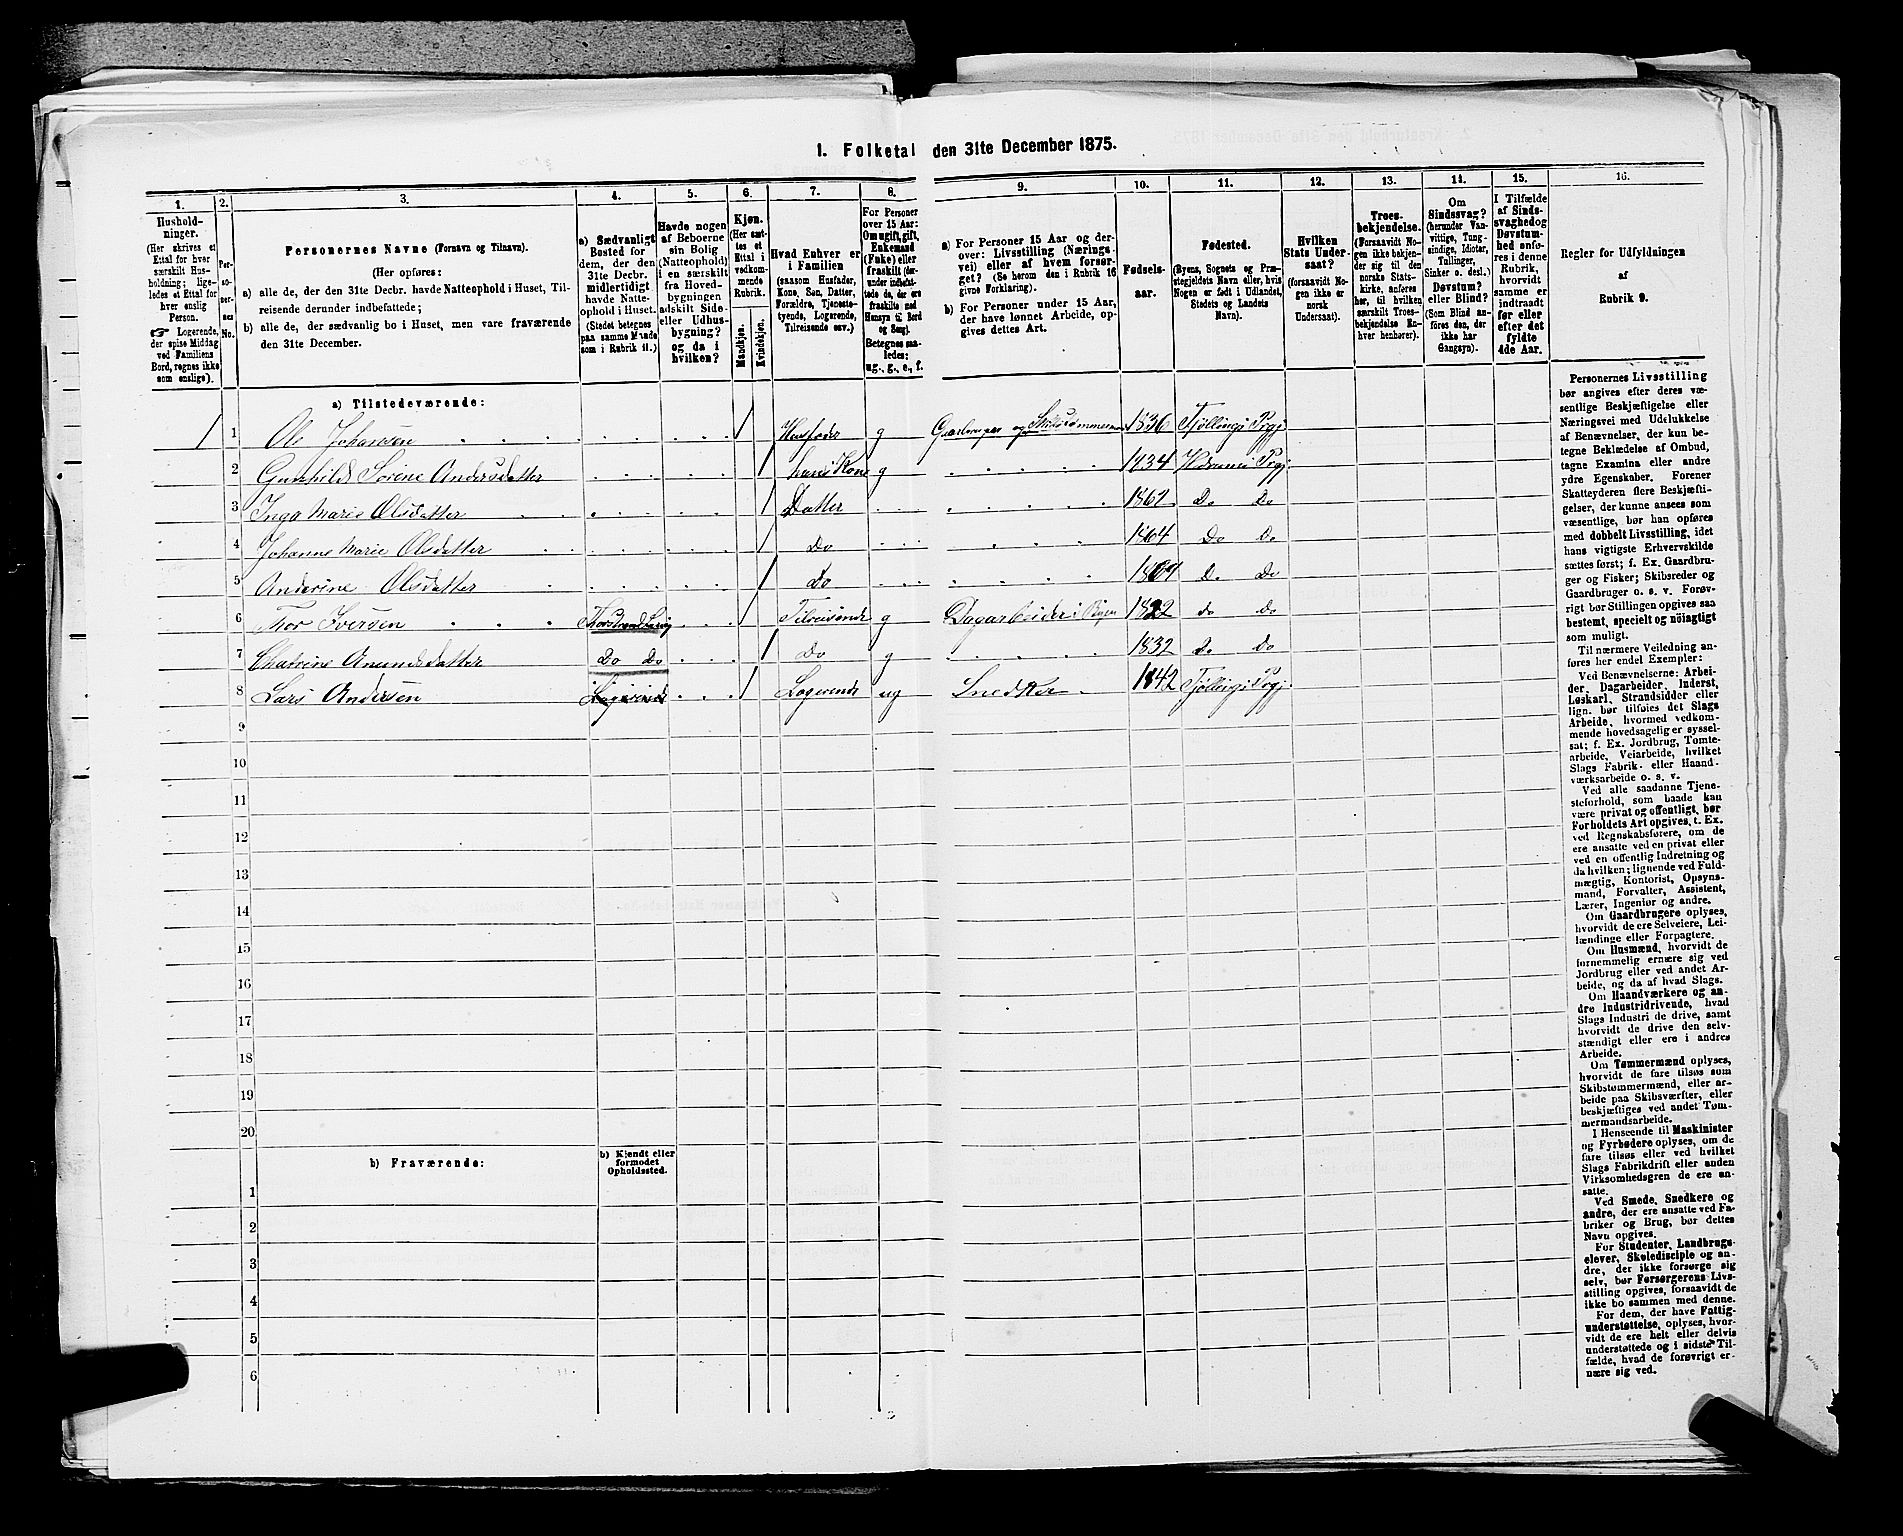 1. Folketal den 31te December 1875.
1. 2. 3. 4. 5. 6. 7. 8. 9. 10. 11. 12. 13. 14. 15. 16.
Hushold-
ninger.
(Her skrives et
Ettal for hver
særskilt Hus-
holdning; lige-
ledes et Ettal for
hver enslig
Person.
☞ Logerende,
der spise Middag
ved Familiens
Bord, regnes ikke
som enslige).
Per-
so-
ner-
nes
No.
Personernes Navne (Fornavn og Tilnavn).
(Her opføres:
a) alle de, der den 31te Decbr. havde Natteophold i Huset, Til-
reisende derunder indbefattede;
b) alle de, der sædvanlig bo i Huset, men vare fraværende
den 31te December.
a) Sædvanligt
Bosted for
dem, der den
31te Decbr.
midlertidigt
havde Natte-
ophold i Huset.
(Stedet betegnes
paa samme Maade
som i Rubrik 11.)
Havde nogen
af Beboerne
sin Bolig
(Natteophold)
i en særskilt
fra Hoved-
bygningen
adskilt Side-
eller Udhus-
bygning?
og da i
hvilken?
Kjøn.
(Her sæt-
tes et
Ettal i
vedkom-
mende
Rubrik.
Mandkjøn.
Kvindekjøn.
Hvad Enhver er
i Familien
(saasom Husfader,
Kone, Søn, Datter,
Forældre, Tjeneste-
tyende, Logerende,
Tilreisende osv.)
For Personer
over 15 Aar:
Om ugift, gift,
Enkemand
(Enke) eller
fraskilt (der-
under indbefat-
tede de, der ere
fraskilte med
Hensyn til Bord
og Seng).
Betegnes saa-
ledes:
ug., g., e., f.
a) For Personer 15 Aar og der-
over: Livsstilling (Nærings-
vei) eller af hvem forsør-
get? (Se herom den i Rubrik 16
givne Forklaring).
b) For Personer under 15 Aar,
der have lønnet Arbeide, op-
gives dettes Art.
Fødsels-
aar.
Fødested.
(Byens, Sognets og Præ-
stegjeldets Navn eller, hvis
Nogen er født i Udlandet,
Stedets og Landets
Navn).
Hvilken
Stats Under-
saat?
(forsaavidt No-
gen ikke er
norsk
Undersaat).
Troes-
bekjendelse.
(Forsaavidt No-
gen ikke bekjen-
der sig til den
norske Stats-
kirke, anføres
her, til hvilken
særskilt Troes-
bekjendelse En-
hver henhører).
Om
Sindssvag?
(herunder Van-
vittige, Tung-
sindige, Idioter,
Tullinger,
Sinker o. desl.)
Døvstum?
eller Blind?
(Som Blind an-
føres den, der
ikke har
Gangsyn).
I Tilfælde
af Sinds-
svaghed og
Døvstum-
hed anfø-
res i denne
Rubrik,
hvorvidt
samme er
indtraadt
før eller
efter det
fyldte
4de Aar.
Regler for Udfyldningen
af
Rubrik 9.
a) Tilstedeværende:
1 1 Ole Johansen 1 Husfader g Gaardbruger og 1836 Tjølling Prgj
2 Gunhild Sørine Andersdatter 1 hans Kone g 1834 Hedrum Prgj
3 Inga Marie Olsdatter 1 Datter 1862 Do Do
4 Johanne Marie Olsdatter 1 Do 1864 Do Do
5 Anderine Olsdatter 1 Do Do Do
6 Thor Iversen 1 Tilreisende g Dagarbeider i Byen do Do
7 Anundsdatter Do Do 1 Do g 1832 Do Do
8 Lars Andersen Logerende 1 Logerende ug Snedker 1842 Tjølling Prgj
9
10
11
12
13
14
15
16
17
18
19
20
b) Fraværende:
b) Kjendt eller
formodet
Opholdssted.
1
2
3
4
5
6
Personernes Livsstilling
bør angives efter deres væ-
sentlige Beskjæftigelse eller
Næringsvei med Udelukkelse
af Benævnelser, der kun be-
tegne Beklædelse af Ombud,
tagne Examina eller andre
ydre Egenskaber. Forener
Skatteyderen flere Beskjæfti-
gelser, der kunne ansees som
væsentlige, bør han opføres
med dobbelt Livsstilling, idet
hans vigtigste Erhvervskilde
sættes først; f. Ex. Gaardbru-
ger og Fisker; Skibsreder og
Gaardbruger o. s. v. Forøv-
rigt bør Stillingen opgives saa
bestemt, specielt og nöiagtigt
som muligt.
Til nærmere Veiledning an-
føres her endel Exempler:
Ved Benævnelserne: Arbei-
der, Dagarbeider, Inderst,
Løskarl, Strandsidder eller
lign. bør tilføies det Slags
Arbeide, hvormed vedkom-
mende hovedsagelig er syssel-
sat; f. Ex. Jordbrug, Tomte-
arbeide, Veiarbeide, hvilket
Slags Fabrik- eller Haand-
værksarbeide o. s. v.
Ved alle saadanne Tjene-
steforhold, som baade kan
være privat og offentligt, bør
Forholdets Art opgives, t. Ex.
ved Regnskabsførere, om de
ere ansatte ved en privat eller
ved en offentlig Indretning og
da hvilken; lignende ved Fuld-
mægtig, Kontorist, Opsyns-
mand, Forvalter, Assistent,
Lærer, Ingeniør og andre.
Om Gaardbrugere oplyses,
hvorvidt de ere Selveiere, Lei-
lændinge eller Forpagtere.
Om Husmænd, hvorvidt de
fornemmelig ernære sig ved
Jordbrug eller ved andet Ar-
beide, og da af hvad Slags.
Om Haandværkere og an-
dre Industridrivende, hvad
Slags Industri de drive, samt
hvorvidt de drive den selv-
stændigt eller ere i andres
Arbeide.
Om Tømmermænd oplyses,
hvorvidt de fare tilsøs som
Skibstømmermænd, eller ar-
beide paa Skibsværfter, eller
beskjæftiges ved andet Tøm-
mermandsarbeide.
I Henseende til Maskinister
og Fyrbødere oplyses, om de
fare tilsøs eller ved hvilket
Slags Fabrikdrift eller anden
Virksomhedsgren de ere an-
satte.
Ved Smede, Snedkere og
andre, der ere ansatte ved Fa-
briker og Brug, bør dettes
Navn opgives.
For Studenter, Landbrugs-
elever, Skoledisciple og an-
dre, der ikke forsørge sig
selv, bør Forsørgerens Livs-
stilling opgives, forsaavidt de
ikke bo sammen med denne.
For dem, der have Fattig-
understøttelse, oplyses, hvor-
vidt de ere helt eller delvis
understøttede og i sidste Til-
fælde, hvad de forøvrigt er-
nære sig ved.